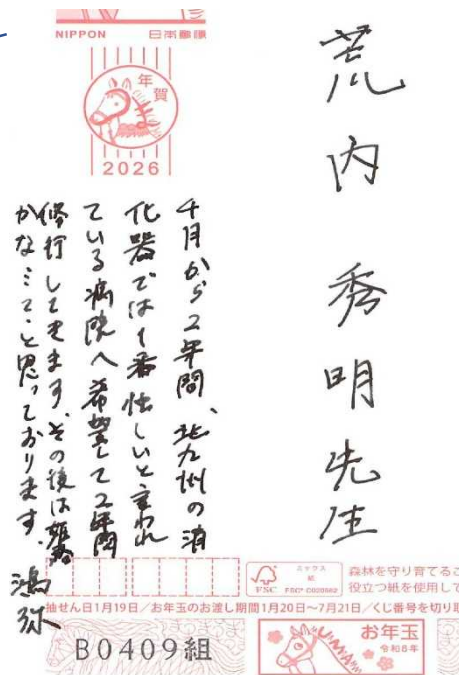 NIPPON 日本郵便
年賀
2026
荒内秀明先生
千月から2年間、北九州の消
化器では1番忙しいと言われ
ている病院へ希望して2年間
修行してきます。その後は
かな…て、と思っております。
鴻弥
FSC
ミックス
紙
FSC® C020862
森林を守り育てるこ
役立つ紙を使用して
抽せん日1月19日/お年玉のお渡し期間1月20日〜7月21日/くじ番号を切り取
B0409組
UMA
お年玉
令和8年